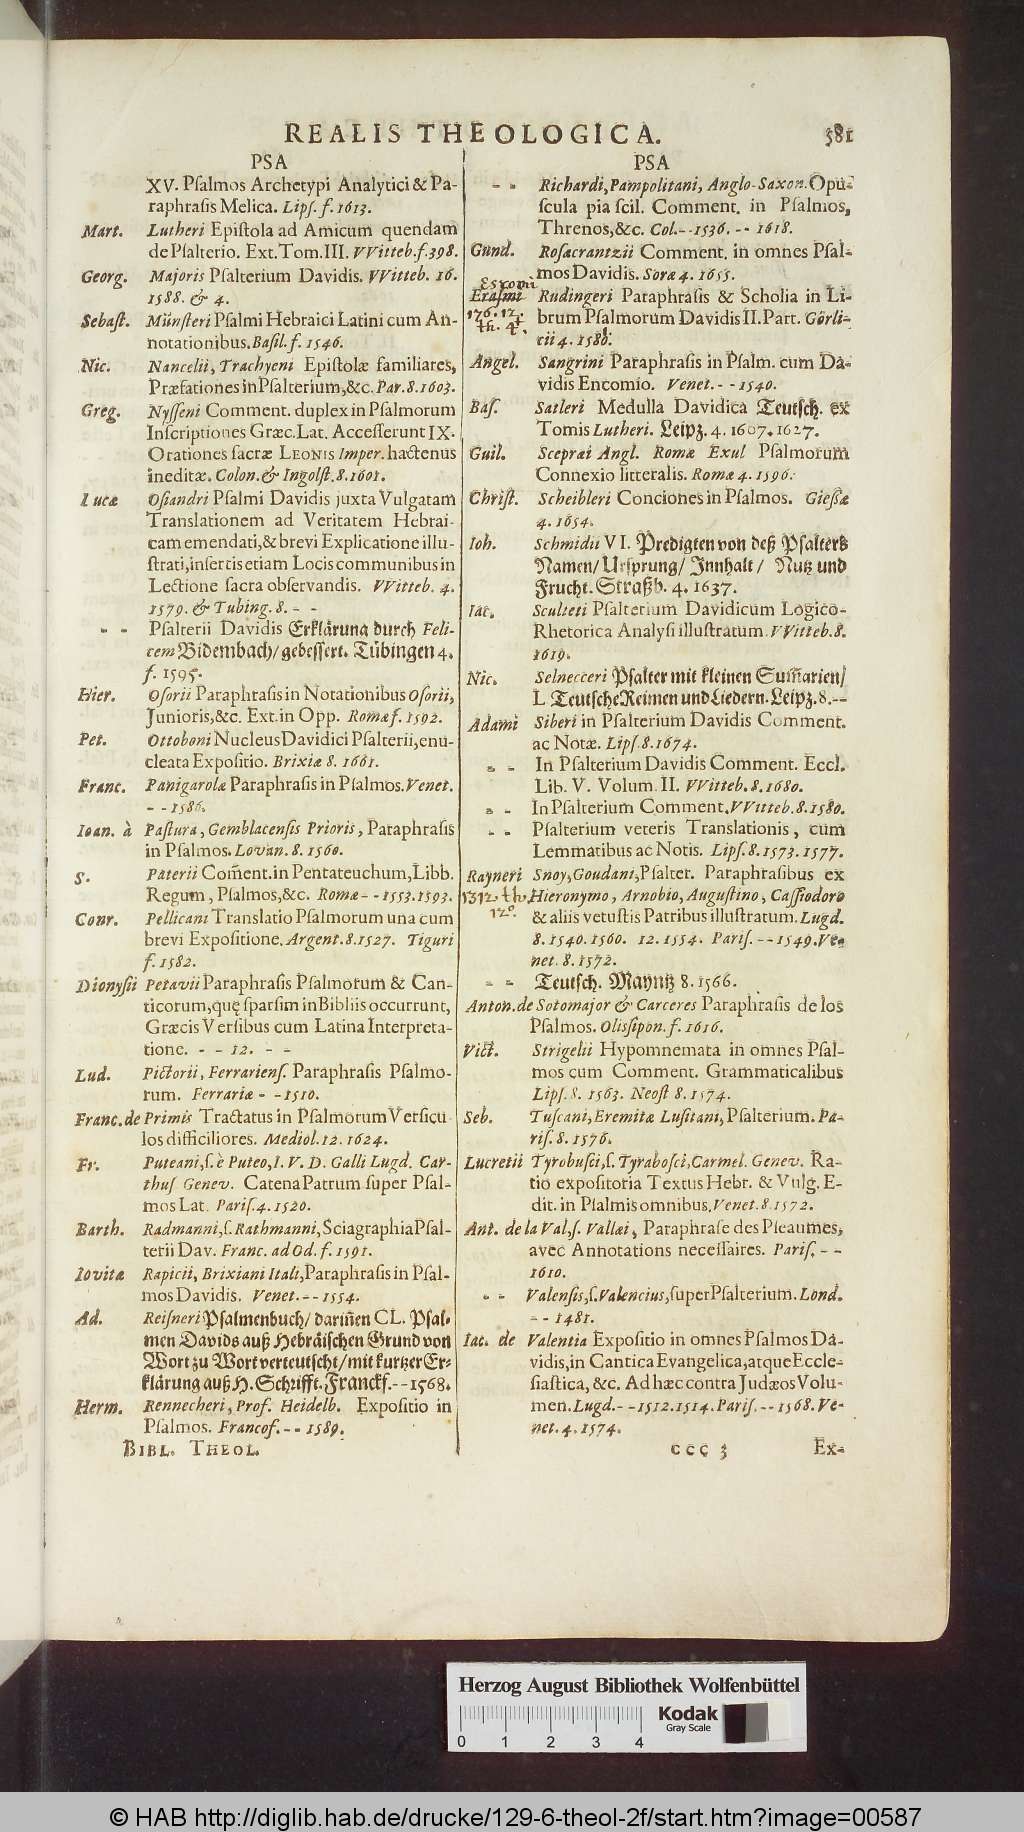 REALIS THEOLOGICA. 581
PSA
XV. Psalmos Archetypi Analytici & Pa-
raphrasis Melica. Lips. f. 1613.
Mart. Lutheri Epistola ad Amicum quendam
de Psalterio. Ext. Tom. III. VVitteb. f. 398.
Georg. Majoris Psalterium Davidis. VVitteb. 16.
1588. & 4.
Sebast. Münsteri Psalmi Hebraici Latini cum An-
notationibus. Basil. f. 1546.
Nic. Nancelii, Trachyeni Epistolæ familiares,
Præfationes in Psalterium, &c. Par. 8. 1603.
Greg. Nysseni Comment. duplex in Psalmorum
Inscriptiones Græc. Lat. Accesserunt IX.
Orationes sacræ LEONIS Imper. hactenus
ineditæ. Colon. & Ingolst. 8. 1601.
Lucæ Osiandri Psalmi Davidis juxta Vulgatam
Translationem ad Veritatem Hebrai-
cam emendati, & brevi Explicatione illu-
strati, insertis etiam Locis communibus in
Lectione sacra observandis. VVitteb. 4.
1579. & Tubing. 8. - -
- - Psalterii Davidis Erklärung durch Feli-
cem Bidembach / gebessert. Tübingen 4.
f. 1595.
Hier. Osorii Paraphrasis in Notationibus Osorii,
Junioris, &c. Ext. in Opp. Romæ f. 1592.
Pet. Ottoboni Nucleus Davidici Psalterii, enu-
cleata Expositio. Brixiæ 8. 1661.
Franc. Panigarolæ Paraphrasis in Psalmos. Venet.
- - 1586.
Ioan. à Pastura, Gemblacensis Prioris, Paraphrasis
in Psalmos. Lovan. 8. 1560.
S. Paterii Com̃ent. in Pentateuchum, Libb.
Regum, Psalmos, &c. Romæ - - 1553. 1593.
Conr. Pellicani Translatio Psalmorum una cum
brevi Expositione. Argent. 8. 1527. Tiguri
f. 1582.
Dionysii Petavii Paraphrasis Psalmorum & Can-
ticorum, quę sparsim in Bibliis occurrunt,
Græcis Versibus cum Latina Interpreta-
tione. - - 12. - -
Lud. Pictorii, Ferrariens. Paraphrasis Psalmo-
rum. Ferrariæ - - 1510.
Franc. de Primis Tractatus in Psalmorum Versicu-
los difficiliores. Mediol. 12. 1624.
Fr. Puteani, s. è Puteo, I. V. D. Galli Lugd. Car-
thus Genev. Catena Patrum super Psal-
mos Lat. Paris. 4. 1520.
Barth. Radmanni, s. Rathmanni, Sciagraphia Psal-
terii Dav. Franc. ad Od. f. 1591.
Iovitæ Rapicii, Brixiani Itali, Paraphrasis in Psal-
mos Davidis. Venet. - - 1554.
Ad. Reisneri Psalmenbuch / dariñen CL. Psal-
men Davids auß Hebräischen Grund von
Wort zu Wort verteutscht / mit kurtzer Er-
klärung auß H. Schrifft. Franckf. - - 1568.
Herm. Rennecheri, Prof. Heidelb. Expositio in
Psalmos. Francof. - - 1589.
BIBL. THEOL.
PSA
- - Richardi, Pampolitani, Anglo-Saxon. Opu-
scula pia scil. Comment. in Psalmos,
Threnos, &c. Col. - - 1536. - - 1618.
Gund. Rosacrantzii Comment. in omnes Psal-
mos Davidis. Soræ 4. 1655.
Erasmi Rudingeri Paraphrasis & Scholia in Li-
126. 12. brum Psalmorum Davidis II. Part. Görli-
th. 4t. cii 4. 1580.
Angel. Sangrini Paraphrasis in Psalm. cum Da-
vidis Encomio. Venet. - - 1540.
Bas. Satleri Medulla Davidica Teutsch. ex
Tomis Lutheri. Leipz. 4. 1607. 1627.
Guil. Sceprai Angl. Romæ Exul Psalmorum
Connexio litteralis. Romæ 4. 1596.
Christ. Scheibleri Conciones in Psalmos. Gießæ
4. 1654.
Ioh. Schmidii VI. Predigten von deß Psalters
Namen / Ursprung / Innhalt / Nutz und
Frucht. Straßb. 4. 1637.
Iac. Sculteti Psalterium Davidicum Logico-
Rhetorica Analysi illustratum. VVitteb. 8.
1619.
Nic. Selnecceri Psalter mit kleinen Sum̃arien /
L Teutsche Reimen und Liedern. Leipz. 8. - -
Adami Siberi in Psalterium Davidis Comment.
ac Notæ. Lips. 8. 1674.
- - In Psalterium Davidis Comment. Eccl.
Lib. V. Volum. II. VVitteb. 8. 1680.
- - In Psalterium Comment. VVitteb. 8. 1580.
- - Psalterium veteris Translationis, cum
Lemmatibus ac Notis. Lips. 8. 1573. 1577.
Rayneri Snoy, Goudani, Psalter. Paraphrasibus ex
1312. th. Hieronymo, Arnobio, Augustino, Cassiodoro
12º. & aliis vetustis Patribus illustratum. Lugd.
8. 1540. 1560. 12. 1554. Paris. - - 1549. Ve-
net. 8. 1572.
- - Teutsch. Mayntz 8. 1566.
Anton. de Sotomajor & Carceres Paraphrasis de los
Psalmos. Olissipon. f. 1616.
Vict. Strigelii Hypomnemata in omnes Psal-
mos cum Comment. Grammaticalibus
Lips. 8. 1563. Neost 8. 1574.
Seb. Tuscani, Eremitæ Lusitani, Psalterium. Pa-
ris. 8. 1576.
Lucretii Tyrobusci, s. Tyrabosci, Carmel. Genev. Ra-
tio expositoria Textus Hebr. & Vulg. E-
dit. in Psalmis omnibus. Venet. 8. 1572.
Ant. de la Val, s. Vallæi, Paraphrase des Pseaumes,
avec Annotations necessaires. Paris. - -
1610.
- - Valensis, s. Valencius, super Psalterium. Lond.
- - 1481.
Iac. de Valentia Expositio in omnes Psalmos Da-
vidis, in Cantica Evangelica, atque Eccle-
siastica, &c. Ad hæc contra Judæos Volu-
men. Lugd. - - 1512. 1514. Paris. - - 1568. Ve-
net. 4. 1574.
cccc 3 Ex-
Herzog August Bibliothek Wolfenbüttel
Kodak
Gray Scale
0 1 2 3 4
© HAB http://diglib.hab.de/drucke/129-6-theol-2f/start.htm?image=00587